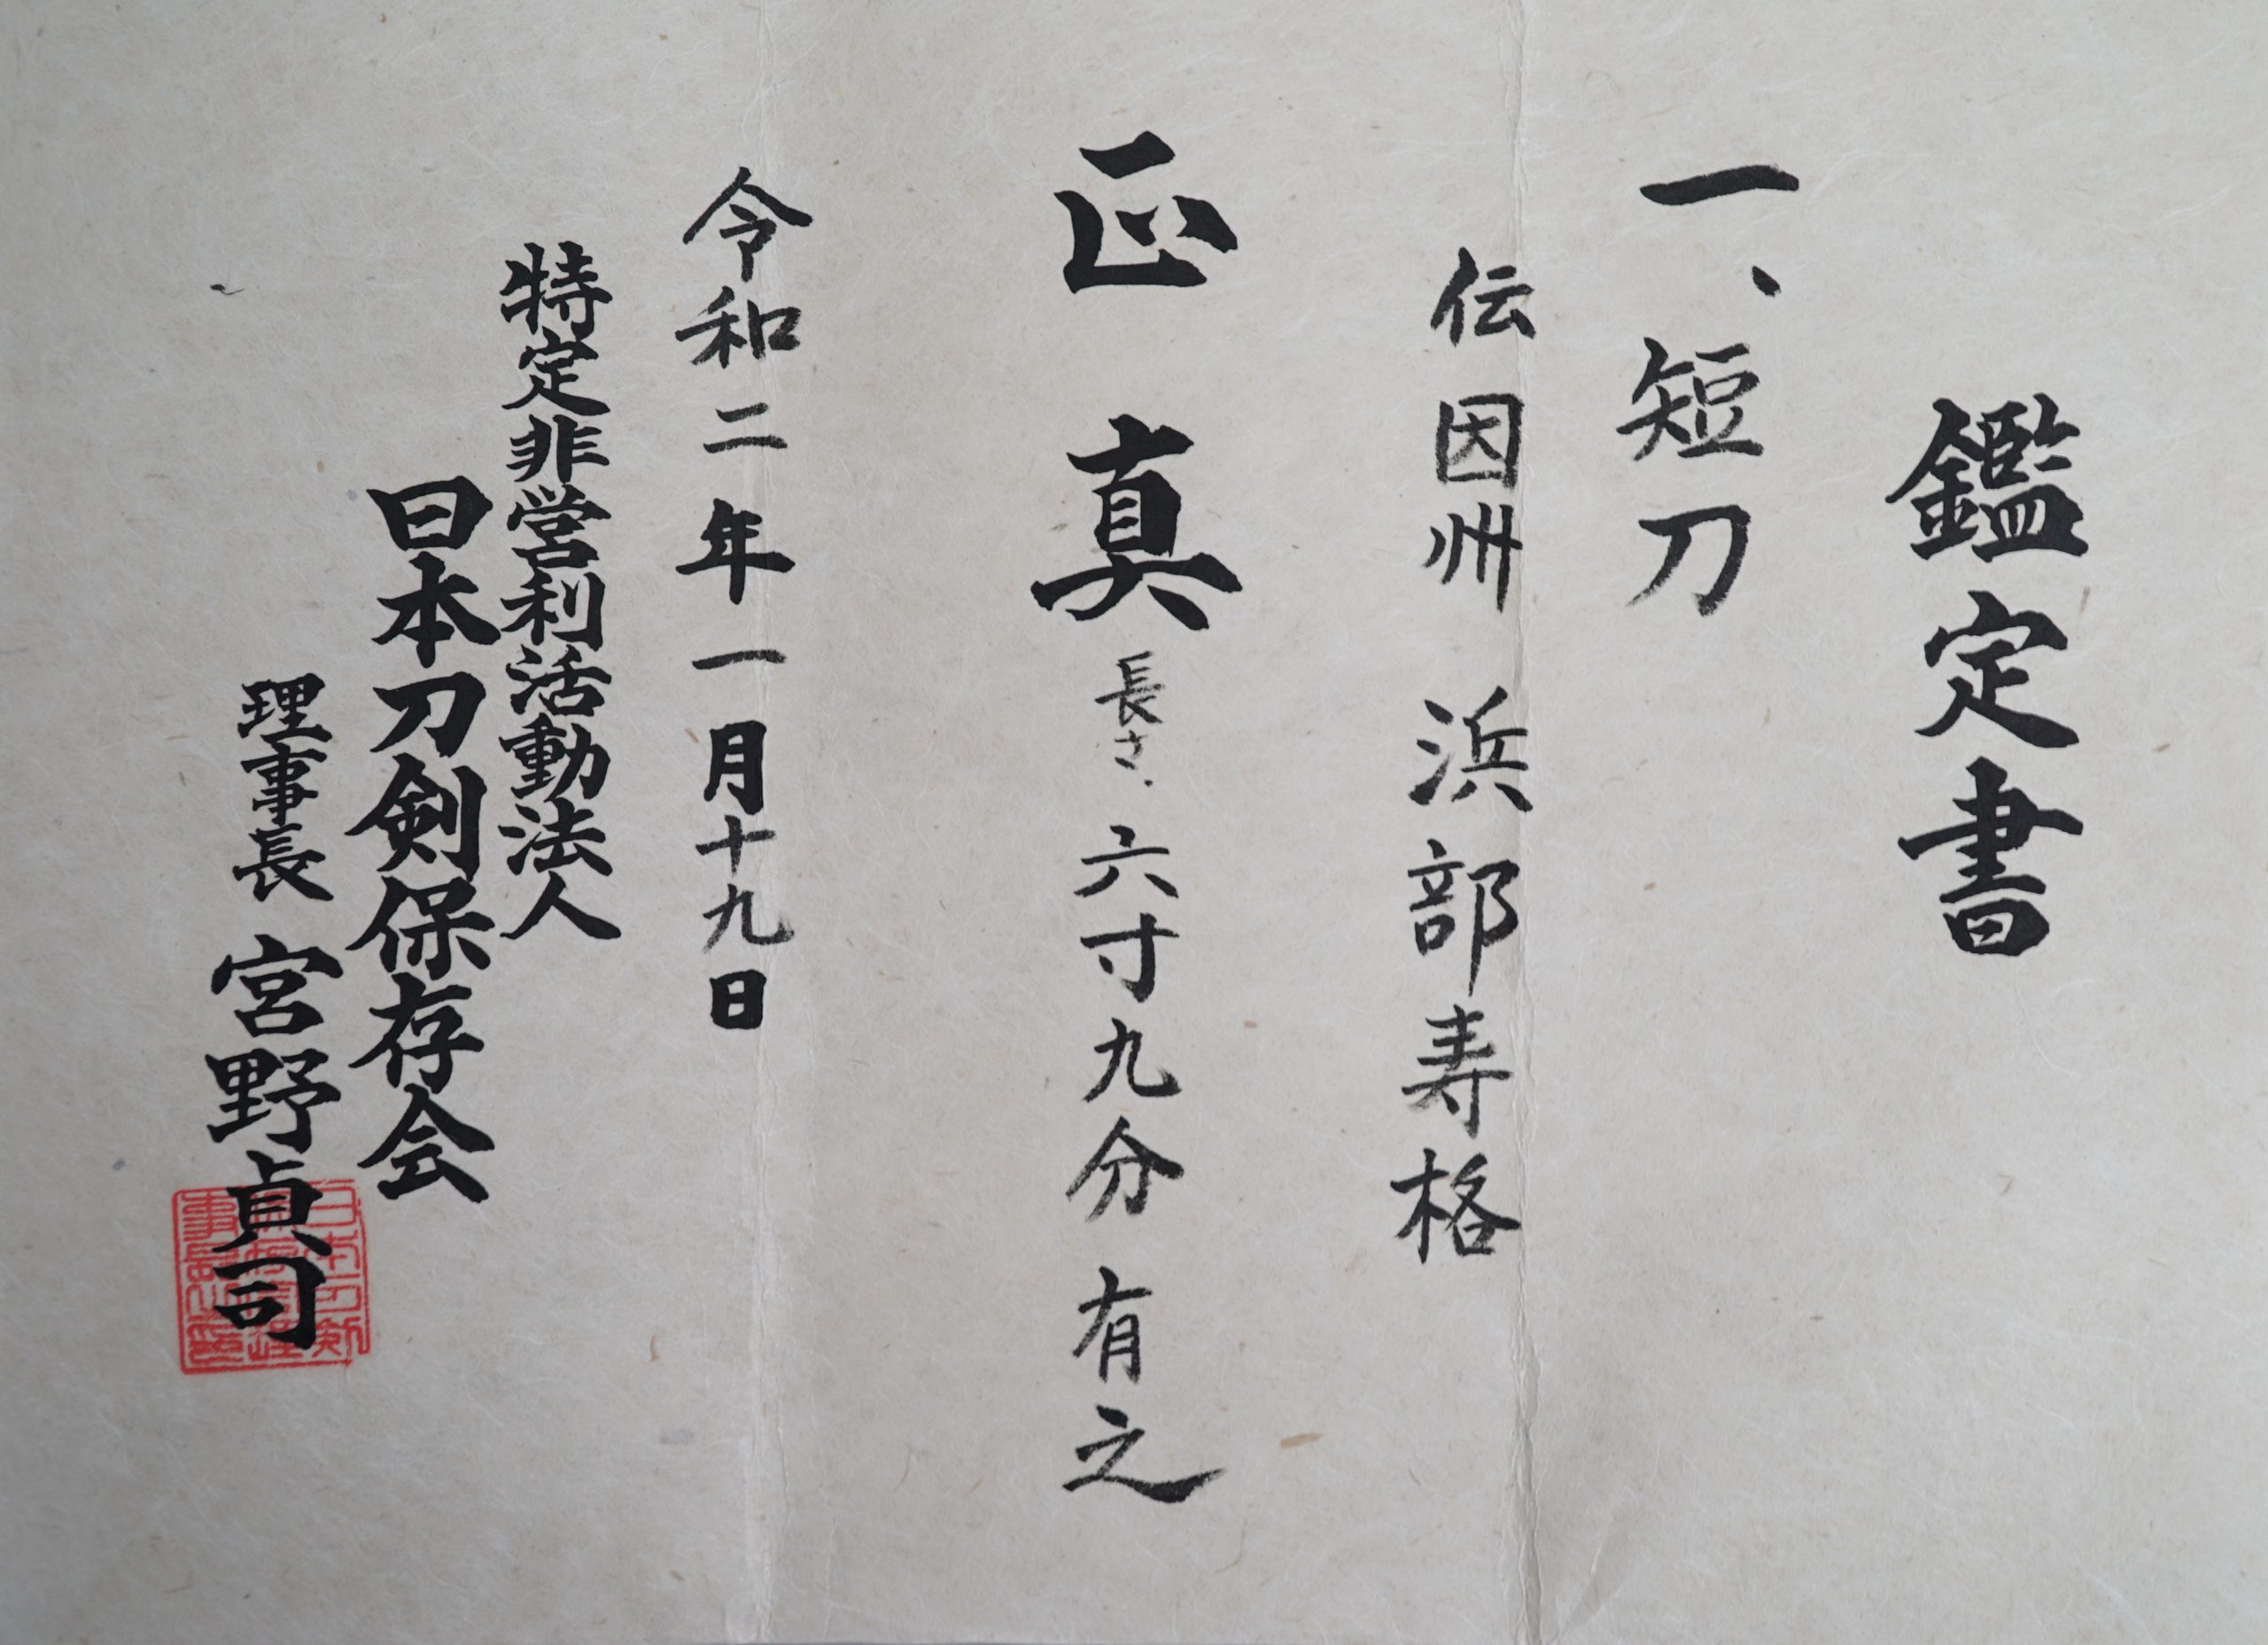 鑑定書
一、短刀
伝因州 浜部寿格
正真 長さ、六寸九分有之
令和二年一月十九日
特定非営利活動法人
日本刀剣保存会
理事長 宮野貞司